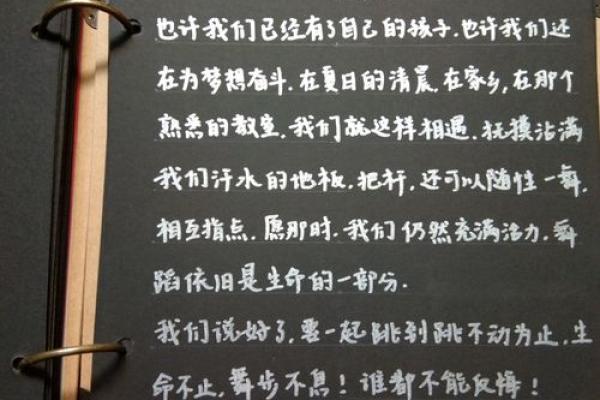 也许我们已经有了自己的孩子.也许我们还
在为梦想奋斗.在夏日的清晨.在家乡,在那个
熟悉的教室.我们就这样相遇.抚摸沾满
我们汗水的地板.把杆.还可以随性一舞.
相互指点.愿那时.我们仍然充满活力.舞
蹈依旧是生命的一部分.
我们说好了,要一起跳到跳不动为止.生
命不止.舞步不息!谁都不能反悔!